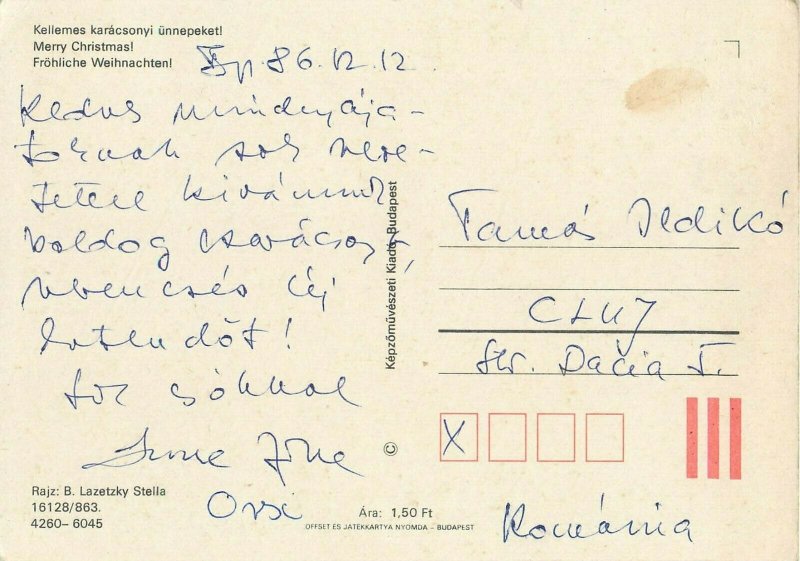 Kellemes karácsonyi ünnepeket!
Merry Christmas!
Fröhliche Weihnachten!
Bp. 86.12.12
Kedves mindnyája-
toknak sok szere-
tettel kívánunk
boldog karácsonyt,
szerencsés Új
esztendőt!
Sok csókkal
Imre
Orsi
Képzőművészeti Kiadó, Budapest
©
Tamás Ildikó
CLUJ
Str. Dacia
X
România
Rajz: B. Lazetzky Stella
16128/863.
4260–6045
Ára: 1,50 Ft
OFFSET ÉS JÁTÉKKÁRTYA NYOMDA – BUDAPEST